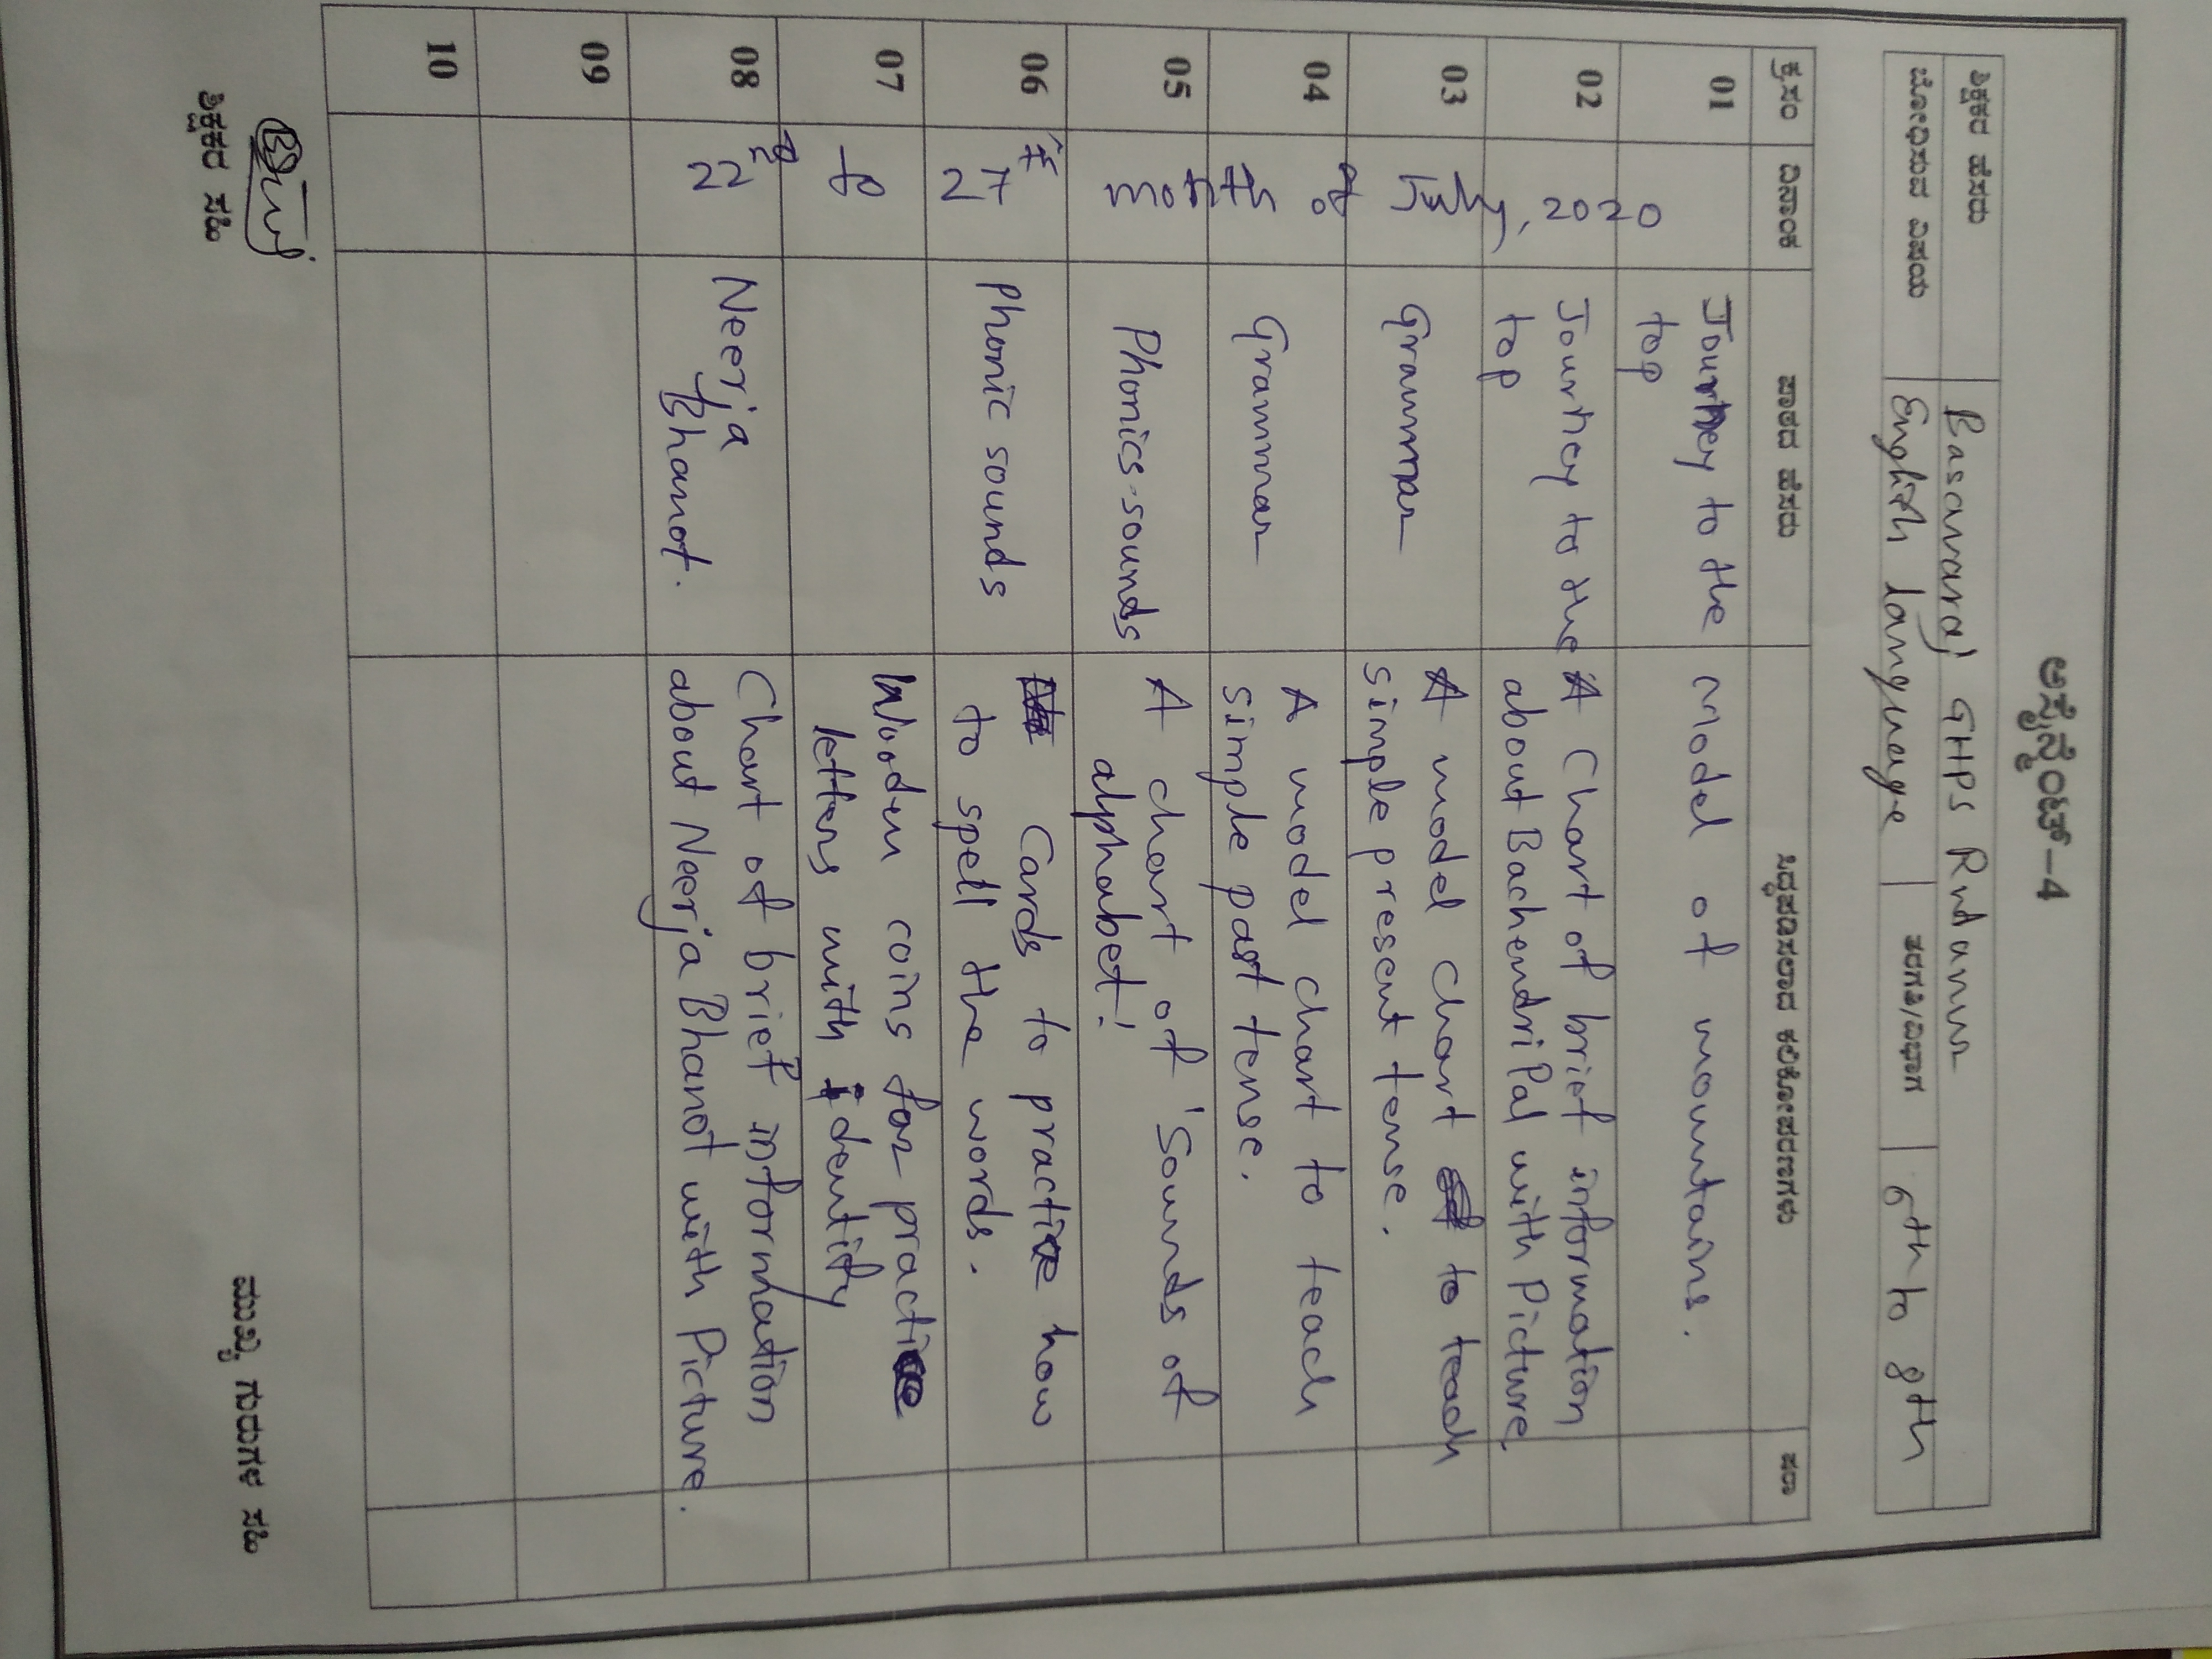 ಅನ್ಸೆನ್ಮೆಂಟ್-4
ಶಿಕ್ಷಕರ ಹೆಸರು Basavaraj GHPS
ಬೋಧಿಸುವ ವಿಷಯ English language ತರಗತಿ/ವಿಭಾಗ 6th to 8th
ಕ್ರ.ಸಂ ದಿನಾಂಕ ಪಾಠದ ಹೆಸರು ಸಿದ್ಧಪಡಿಸಲಾದ ಕಲಿಕೋಪಕರಣಗಳು ಷರಾ
01 Journey to the Model of mountains.
top
02 Journey to the A Chart of brief information
top about Bachendri Pal with Picture
03 Grammar A model chart to teach
simple present tense.
04 Grammar A model chart to teach
simple past tense.
05 Phonics sounds A chart of 'Sounds of
alphabet!
06 Phonic sounds Cards to practice how
to spell the words.
07 Wooden coins for practice
letters with identity
08 Neerja Chart of brief information
Bhanot. about Neerja Bhanot with Picture.
09
10
22nd to 27th month of July, 2020
ಶಿಕ್ಷಕರ ಸಹಿ ಮುಖ್ಯ ಗುರುಗಳ ಸಹಿ